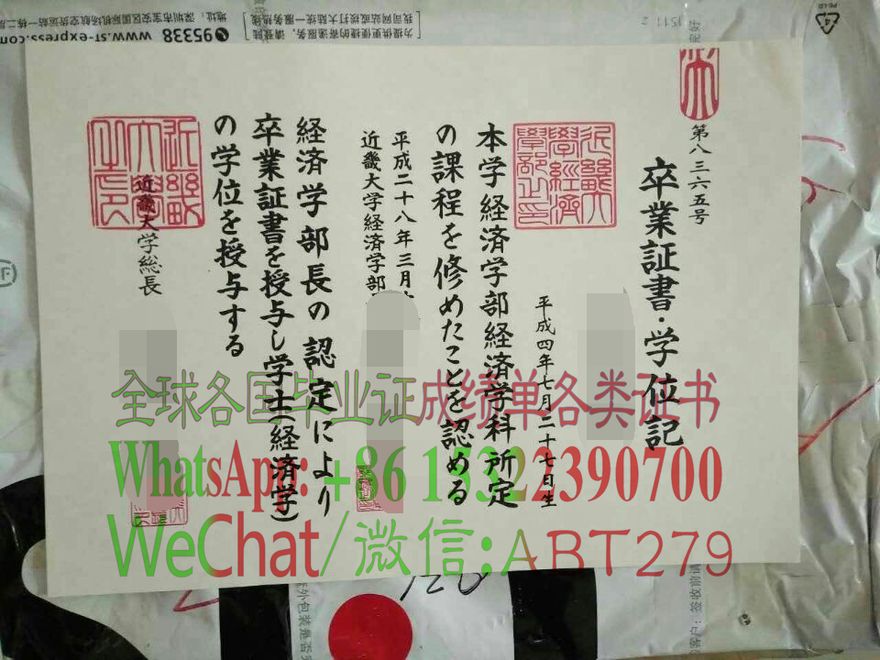 第八三六五号
卒業証書・学位記
平成四年七月二十七日生
近畿大学経済学部之印
本学経済学部経済学科所定
の課程を修めたことを認める
平成二十八年三月
近畿大学経済学部
経済学部長の認定により
卒業証書を授与し学士(経済学)
の学位を授与する
近畿大学総長
全球各国毕业证成绩单各类证书
WhatsApp: +86 15322390700
WeChat/微信:ABT279
95338
www.sf-express.com